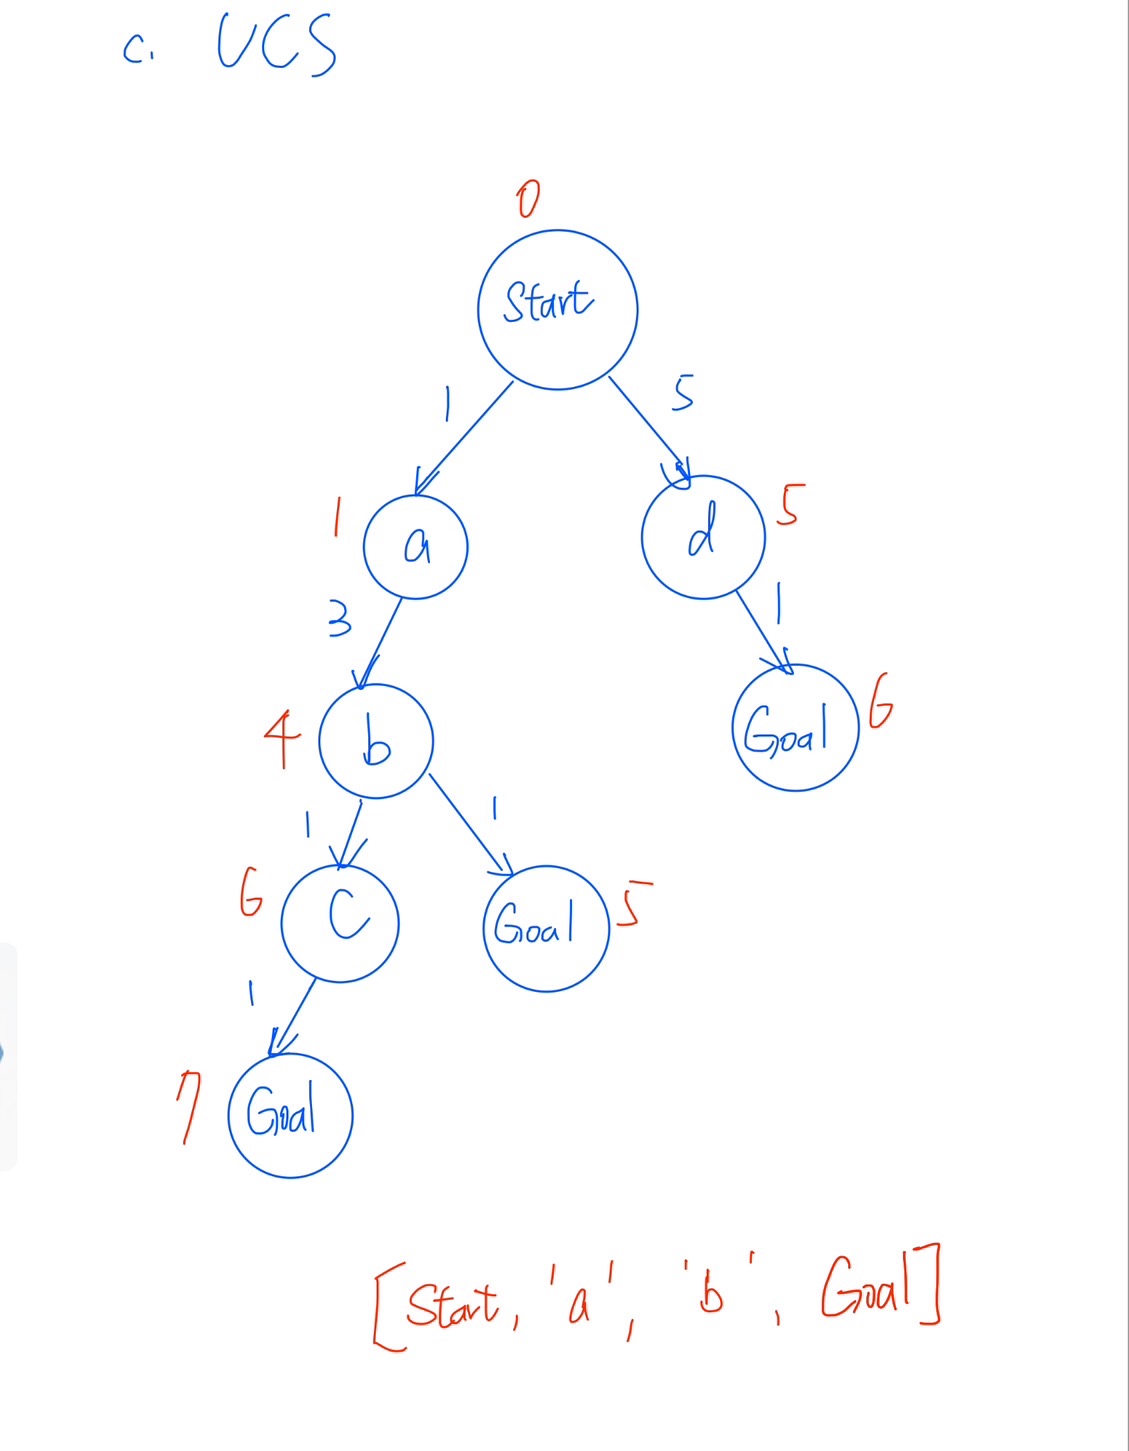 c. UCS
0
Start
1 5
1 a d 5
3 1
4 b Goal 6
1 1
6 C Goal 5
1
7 Goal
[Start, 'a', 'b', Goal]